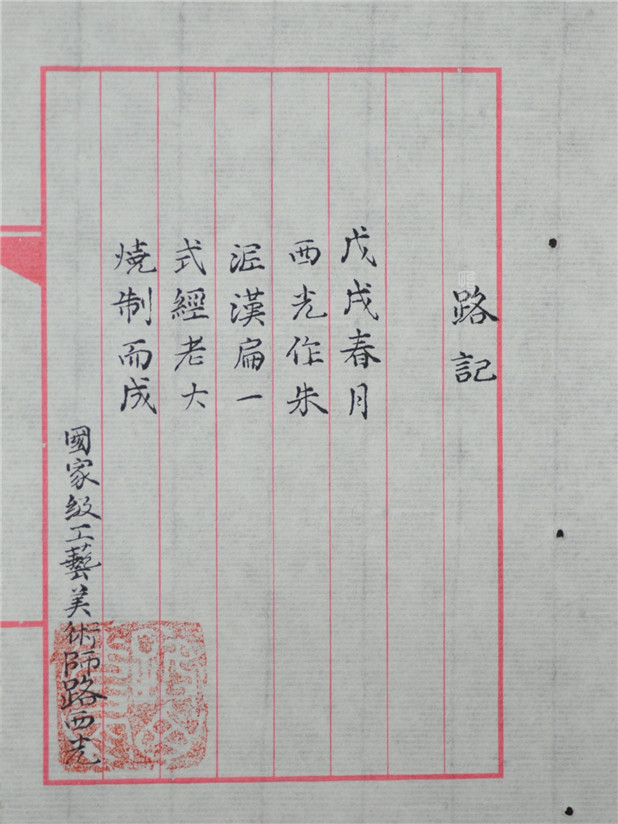 路記
戊戌春月
西光作朱
泥漢扁一
式經老大
燒制而成
國家級工藝美術師路西光